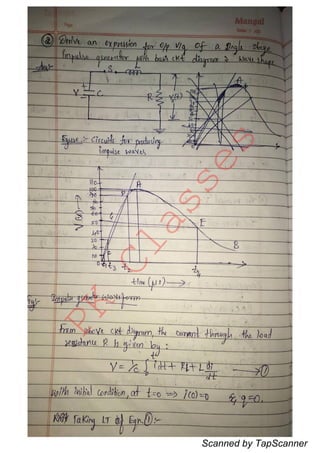 Page
Mangal
② Derive an expression for o/p v/g of a single stage
impulse generator with basic ckt diagram & wave shape
Ans:
S L
V C R V(t) A
Figure :- Circuits for producing
impulse waves
V(t) →
A
D
C
E
B
t3 t2 t4
time (μs) →
Fig:- Impulse generator waveform
PK Classes
From above ckt diagram, the current through the load
resistance R is given by :
V = 1/C ∫ idt + Ri + L di/dt → ①
With initial condition, at t=0 ⇒ i(0)=0 & q=0.
Taking LT of Eqn. ① :-
Scanned by TapScanner